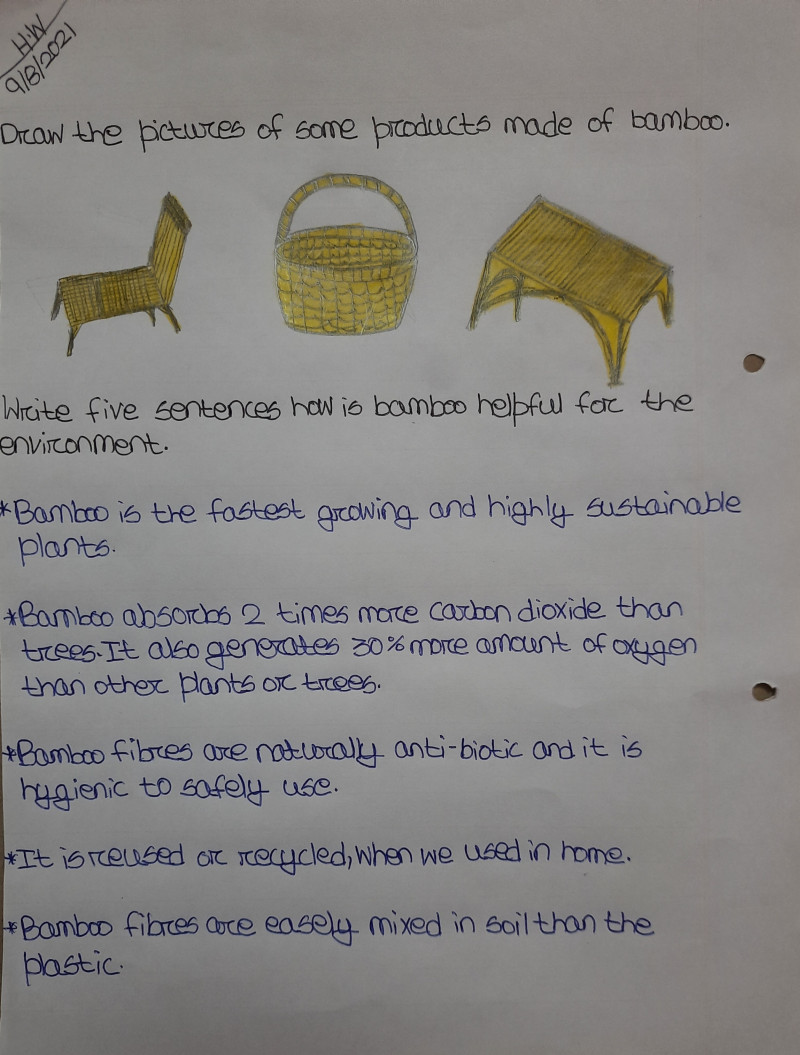 H.W
9/8/2021
Draw the pictures of some products made of bamboo.
Write five sentences how is bamboo helpful for the
environment.
*Bamboo is the fastest growing and highly sustainable
plants.
*Bamboo absorbs 2 times more carbon dioxide than
trees. It also generates 30% more amount of oxygen
than other plants or trees.
*Bamboo fibres are naturally anti-biotic and it is
hygienic to safely use.
*It is reused or recycled, when we used in home.
*Bamboo fibres are easely mixed in soil than the
plastic.